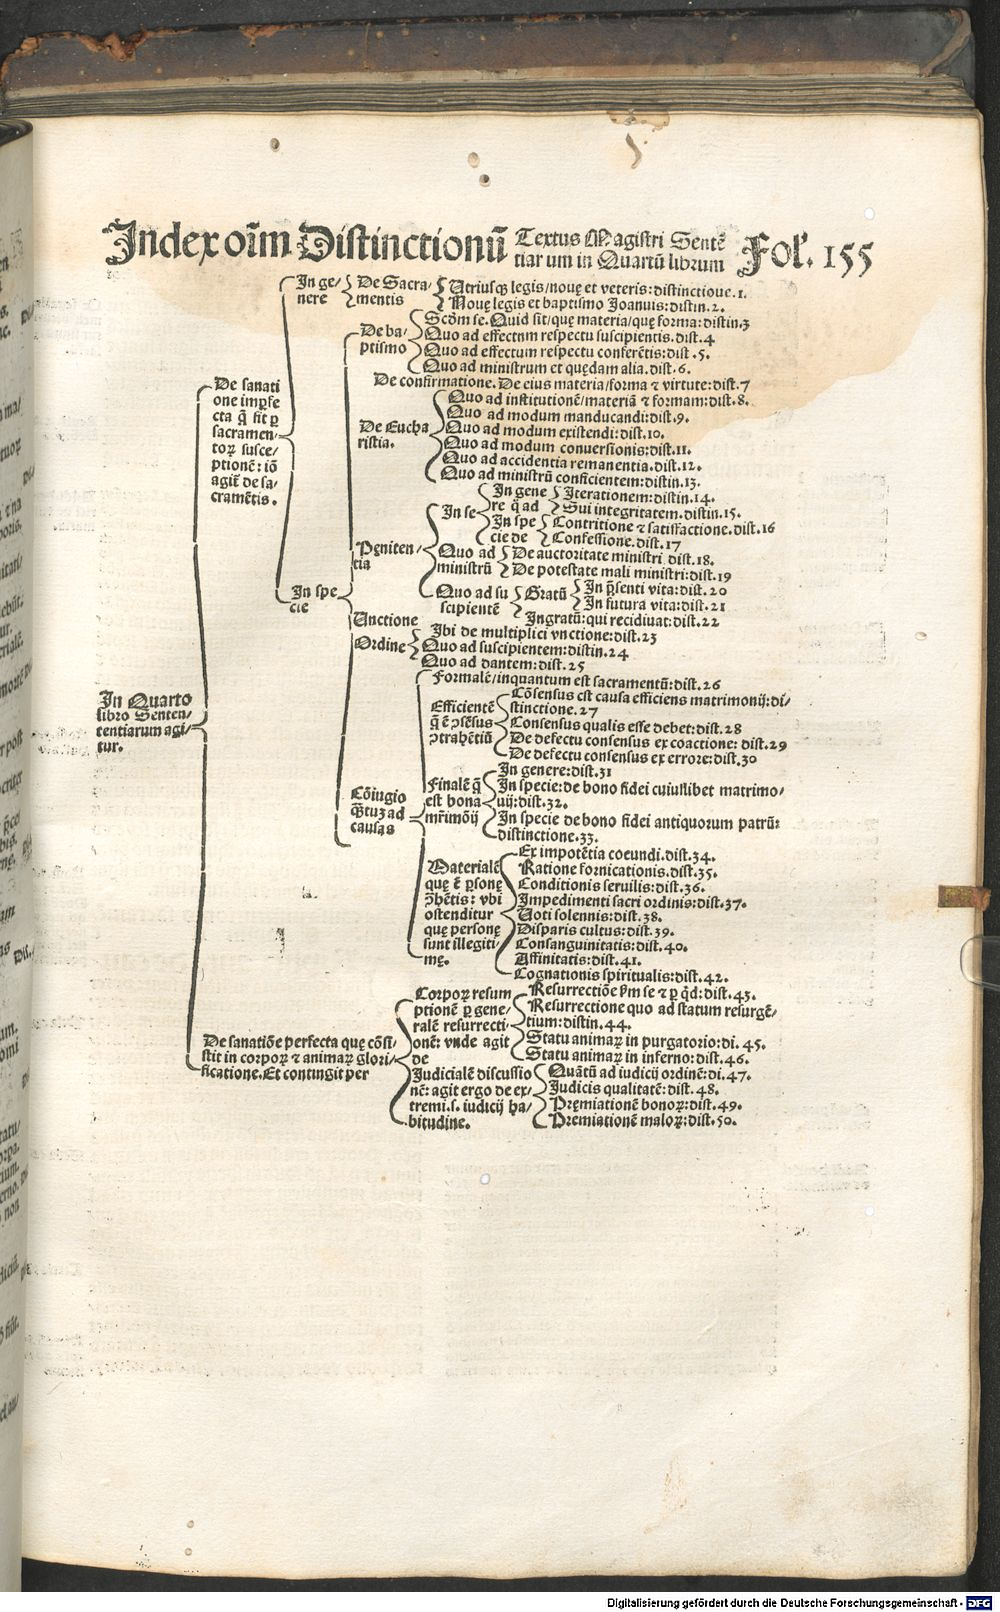 Index oīm Distinctionū Textus Magistri Sentē
tiar um in Quartū librum Fol'. 155
In Quarto
libro Senten-
tentiarum agi-
tur.
De sanati
one imꝑfe
cta q̄ fit ꝑ
sacramen-
toꝝ susce-
ptionē: iō
agit̄ de sa-
cramētis.
In ge-
nere
De Sacra-
mentis
Utriusqꝫ legis/nouę et veteris: distinctioue.1.
Nouę legis et baptismo Joannis: distin.2.
In spe
cie
De ba-
ptismo
Scdm se. Quid sit/quę materia/quę forma: distin.3
Quo ad effectum respectu suscipientis. dist.4
Quo ad effectum respectu conferētis: dist .5.
Quo ad ministrum et quędam alia. dist.6.
De confirmatione. De eius materia/forma ⁊ virtute: dist.7
De Eucha
ristia.
Quo ad institutionē/materiā ⁊ formam: dist.8.
Quo ad modum manducandi: dist.9.
Quo ad modum existendi: dist.10.
Quo ad modum conuersionis: dist.11.
Quo ad accidentia remanentia. dist.12.
Quo ad ministrū conficientem: distin.13.
Pęniten-
tia
In se
In gene
re q̄ ad
Iterationem: distin.14.
Sui integritatem. distin.15.
In spe
cie de
Contritione ⁊ satisfactione. dist.16
Confessione. dist.17
Quo ad
ministrū
De auctoritate ministri dist.18.
De potestate mali ministri: dist.19
Quo ad su
scipientē
Gratū
In p̄senti vita: dist.20
In futura vita: dist.21
Ingratū: qui recidiuat: dist.22
Unctione
Ibi de multiplici vnctione: dist.23
Ordine
Quo ad suscipientem: distin.24
Quo ad dantem: dist.25
Cōiugio
qꝫtuꝫ ad
causas
Formalē/inquantum est sacramentū: dist.26
Efficientē
q̄ ē ↄsēsus
ↄtrahētiū
Cōsensus est causa efficiens matrimonij: di-
stinctione.27
Consensus qualis esse debet: dist.28
De defectu consensus ex coactione: dist.29
De defectu consensus ex errore: dist.30
Finalē q̄
est bona
mr̄imōij
In genere: dist.31
In specie: de bono fidei cuiuslibet matrimo-
uij: dist.32.
In specie de bono fidei antiquorum patrū:
distinctione.33.
Materialē
quę ē ꝑsonę
ↄ̄hētis: vbi
ostenditur
quę personę
sunt illegiti-
mę.
Ex impotētia coeundi. dist.34.
Ratione fornicationis. dist.35.
Conditionis seruilis: dist.36.
Impedimenti sacri ordinis: dist.37.
Uoti solennis: dist.38.
Disparis cultus: dist.39.
Consanguinitatis: dist.40.
Affinitatis: dist.41.
Cognationis spiritualis: dist.42.
De sanatiōe perfecta quę cōsi-
stit in corpoꝝ ⁊ animaꝝ glori-
ficatione. Et contingit per
Corpoꝝ resum
ptionē ꝑ gene-
ralē resurrecti-
onē: vnde agit
de
Resurrectiōe ẜm se ⁊ ꝑ q̄d: dist.43.
Resurrectione quo ad statum resurgē-
tium: distin.44.
Statu animaꝝ in purgatorio: di. 45.
Statu animaꝝ in inferno: dist.46.
Judicialē discussio
nē: agit ergo de ex-
tremi.s. iudicij ha-
bitudine.
Quātū ad iudicij ordinē: di.47.
Judicis qualitatē: dist.48.
Pręmiationē bonoꝝ: dist.49.
Pręmiationē maloꝝ: dist.50.
Digitalisierung gefördert durch die Deutsche Forschungsgemeinschaft - DFG